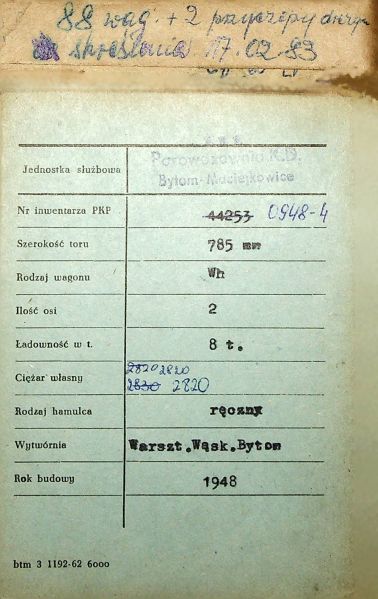 88 wag. + 2 przyczepy
skreślenia 17.02.83
Jednostka służbowa
Parowozownia K.D.
Bytom-Maciejkowice
Nr inwentarza PKP 44253 0948-4
Szerokość toru 785 mm
Rodzaj wagonu Wh
Ilość osi 2
Ładowność w t. 8 t.
2820 2820
Ciężar własny 2830 2820
Rodzaj hamulca ręczny
Wytwórnia Warszt.Wąsk.Bytom
Rok budowy 1948
btm 3 1192-62 6000